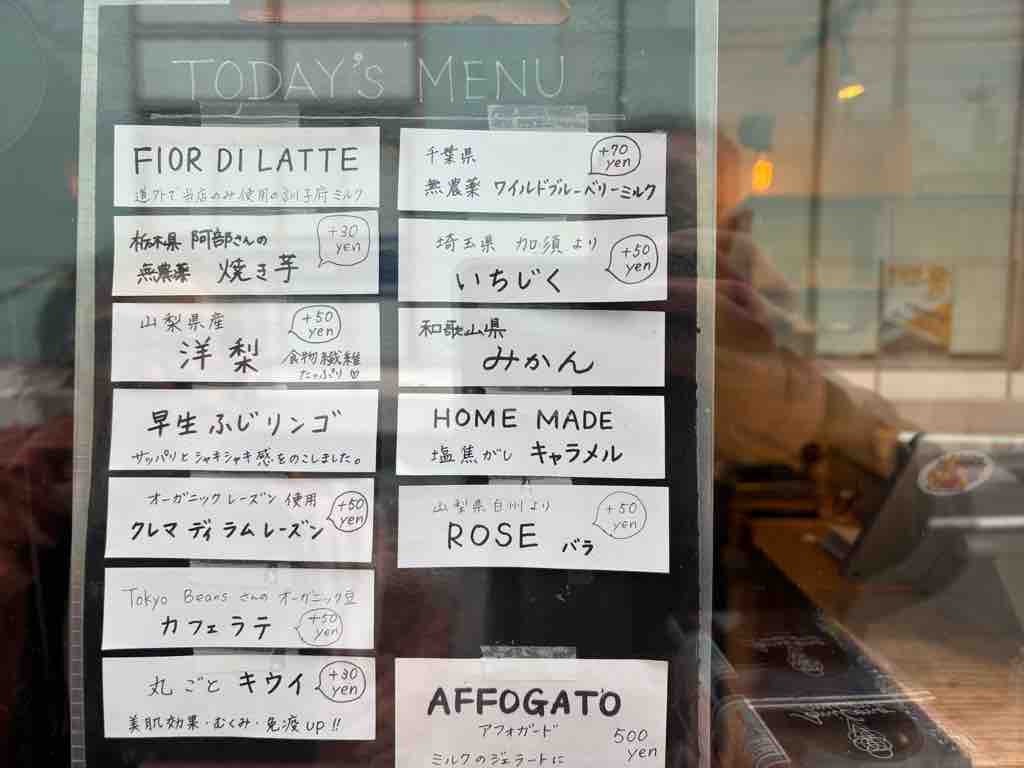 TODAY's MENU
FIOR DI LATTE
道外で当店のみ使用の訓子府ミルク
栃木県 阿部さんの
無農薬 焼き芋
+30 yen
山梨県産
洋梨
+50 yen
食物繊維
たっぷり♡
早生ふじリンゴ
サッパリとシャキシャキ感をのこしました。
オーガニックレーズン使用
クレマ ディ ラムレーズン
+50 yen
Tokyo Beans さんの オーガニック豆
カフェラテ
+50 yen
丸ごと キウイ
+30 yen
美肌効果・むくみ・免疫UP!!
千葉県
+70 yen
無農薬 ワイルドブルーベリーミルク
埼玉県 加須より
いちじく
+50 yen
和歌山県
みかん
HOME MADE
塩焦がし キャラメル
山梨県白州より
ROSE バラ
+50 yen
AFFOGATO
アフォガード
500 yen
ミルクのジェラートに